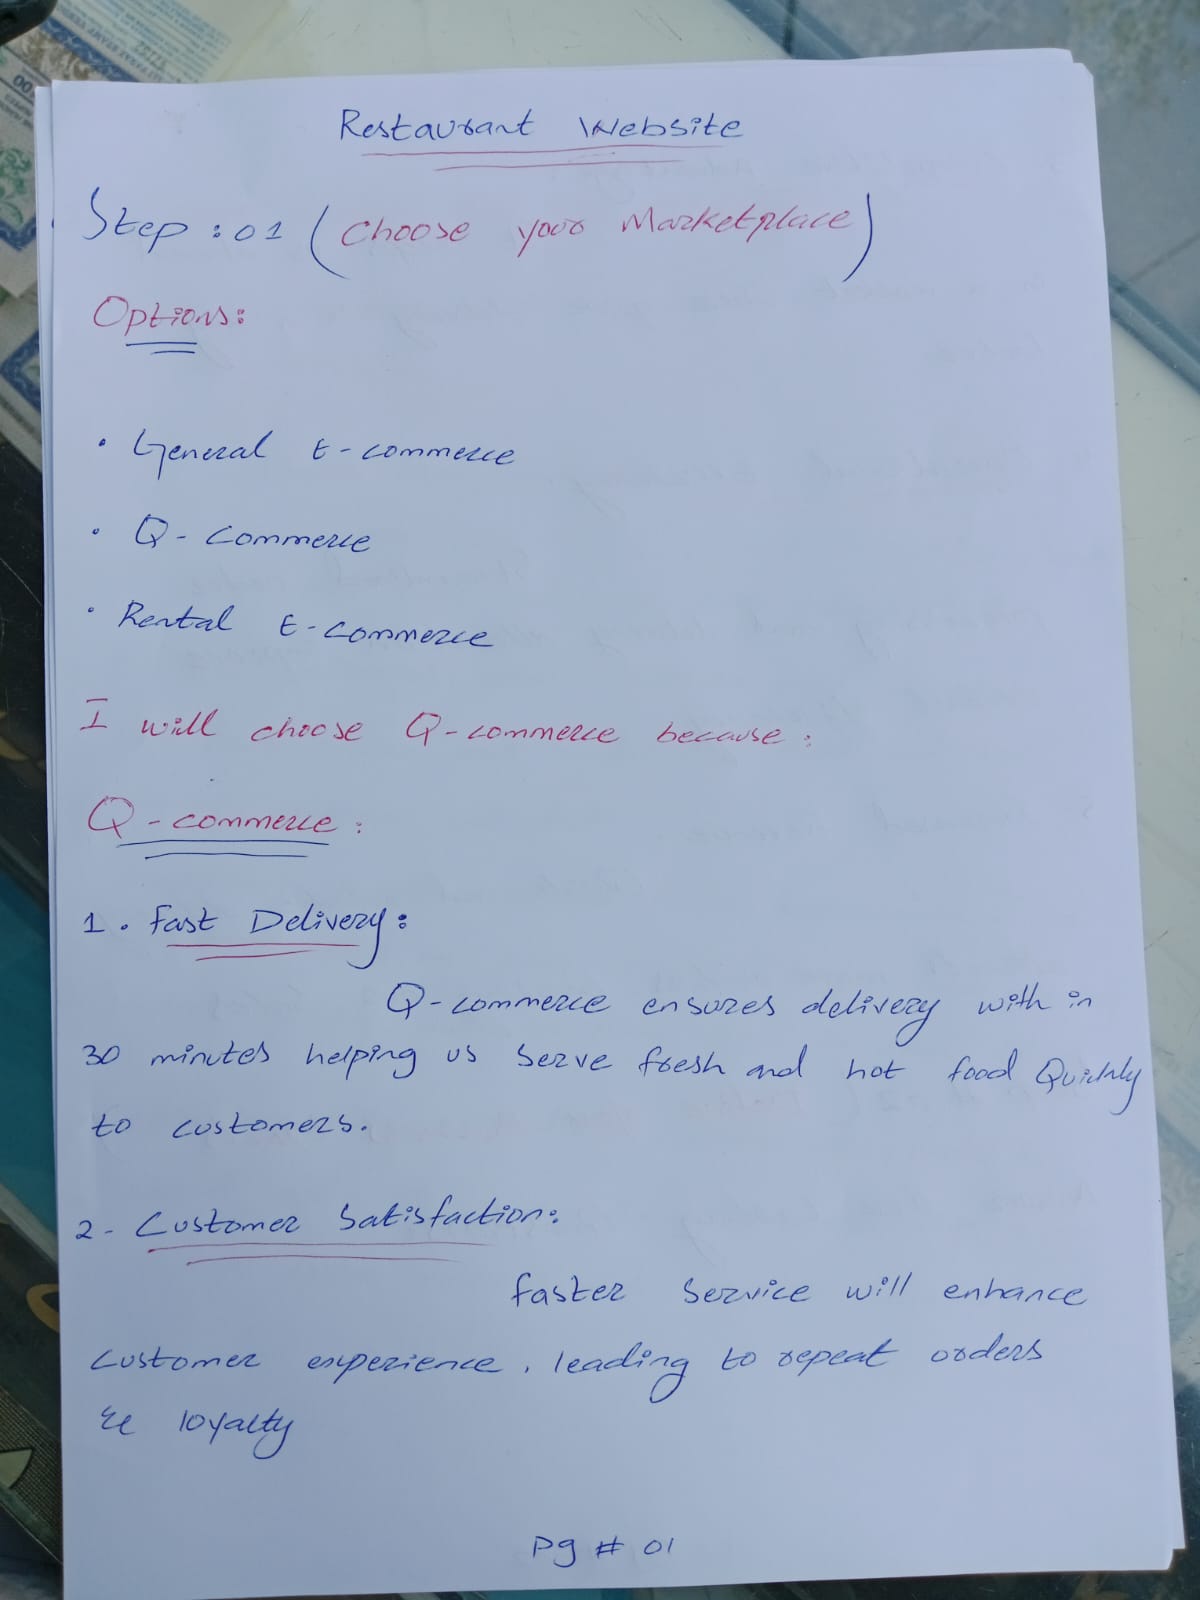 Restaurant Website
Step : 01 (Choose your Marketplace)
Options:
• General E-commerce
• Q- Commerce
• Rental E-Commerce
I will choose Q-commerce because :
Q-commerce :
1 . Fast Delivery :
Q-commerce ensures delivery with in
30 minutes helping us serve fresh and hot food Quickly
to customers.
2 - Customer Satisfaction:
faster service will enhance
customer experience, leading to repeat orders
& loyalty
Pg # 01